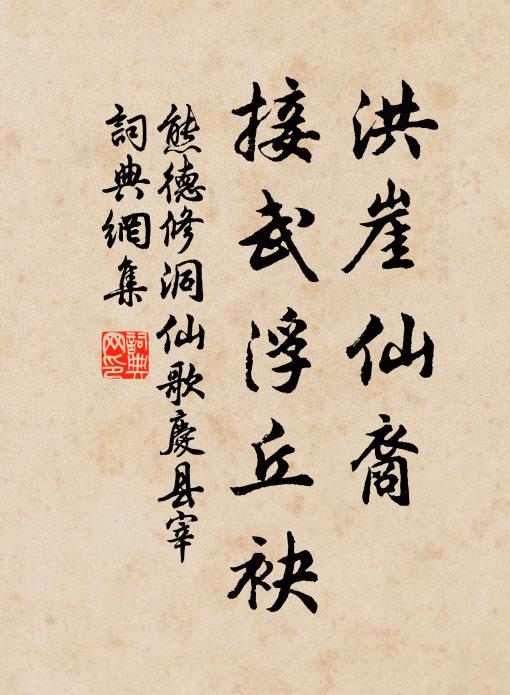 洪崖仙裔
接武浮丘袂
熊德修洞仙歌慶县宰
詞典網集
詞典
网印